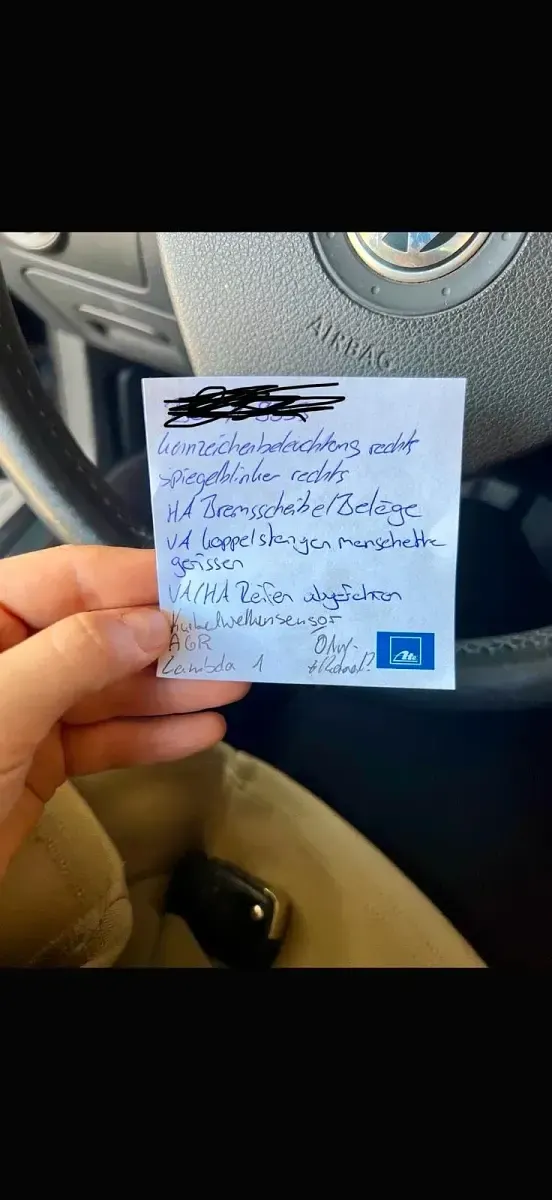 AIRBAG
Kennzeichenbeleuchtung rechts
Spiegelblinker rechts
HA Bremsscheibe/Beläge
VA Koppelstangen manschette
gerissen
VA/HA Reifen abgefahren
Kurbelwellensensor
AGR
Lambda 1
Ate